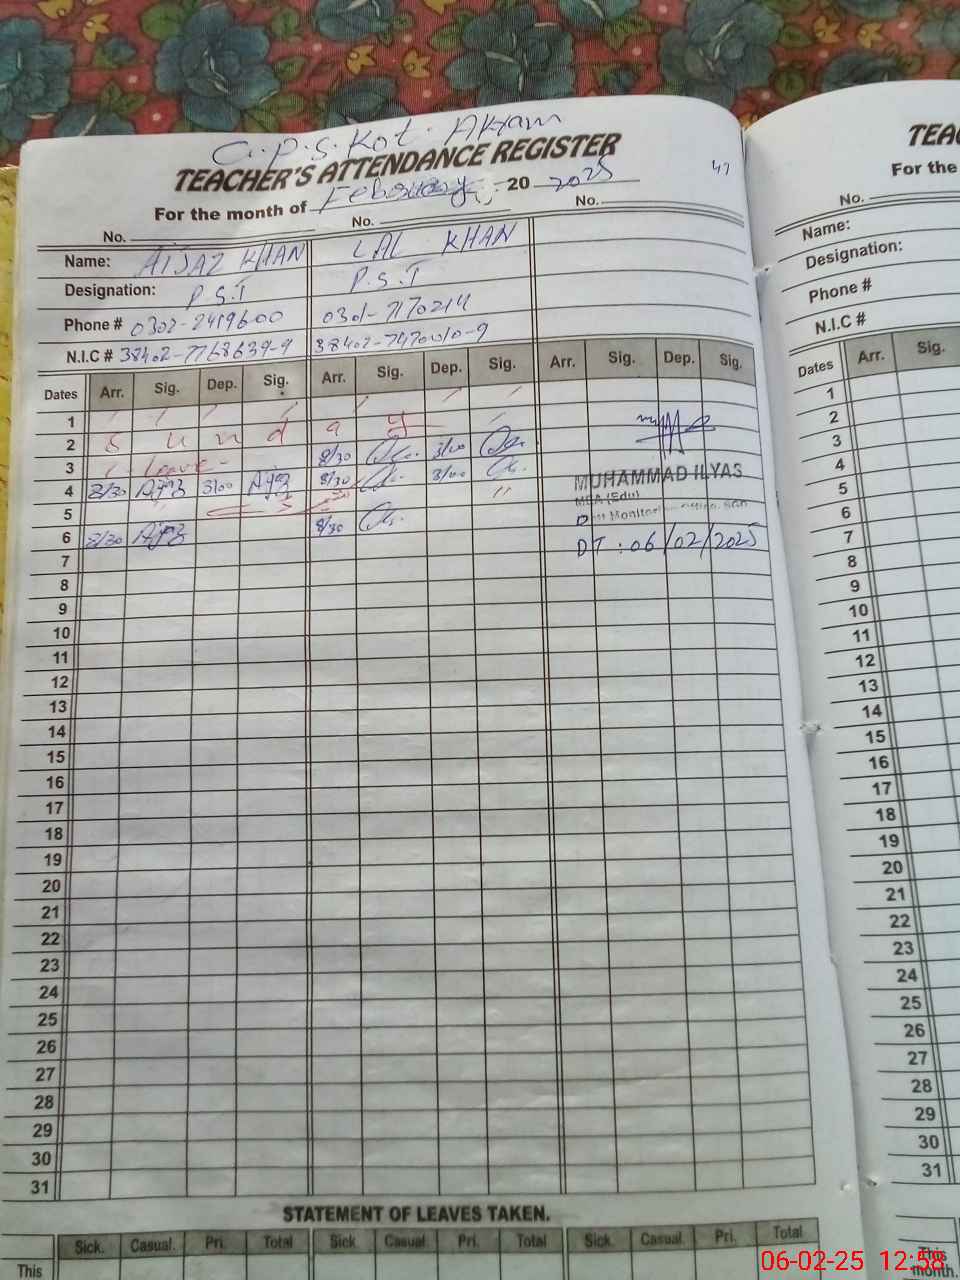 G.P.S. Kot. Akram
TEACHER'S ATTENDANCE REGISTER
47
For the month of February 20 2025
No. No. No.
Name: AIJAZ KHAN LAL KHAN
Designation: P.S.T P.S.T
Phone # 0302-2419600 0301-7170214
N.I.C # 38402-7768639-9 38402-7470010-9
Dates Arr. Sig. Dep. Sig. Arr. Sig. Dep. Sig. Arr. Sig. Dep. Sig.
1
2 Sunday
3 Leave 8/30 3/00
4 8/30 Ajaz 3/00 Ajaz 8/30 3/00
5
6 8/30 Ajaz 8/30
MUHAMMAD ILYAS
DT: 06/02/2025
7
8
9
10
11
12
13
14
15
16
17
18
19
20
21
22
23
24
25
26
27
28
29
30
31
STATEMENT OF LEAVES TAKEN.
Sick. Casual. Pri. Total Sick. Casual. Pri. Total Sick. Casual. Pri. Total
This
TEA
For the
No.
Name:
Designation:
Phone #
N.I.C #
Dates Arr. Sig.
1
2
3
4
5
6
7
8
9
10
11
12
13
14
15
16
17
18
19
20
21
22
23
24
25
26
27
28
29
30
31
This
month.
06-02-25 12:58